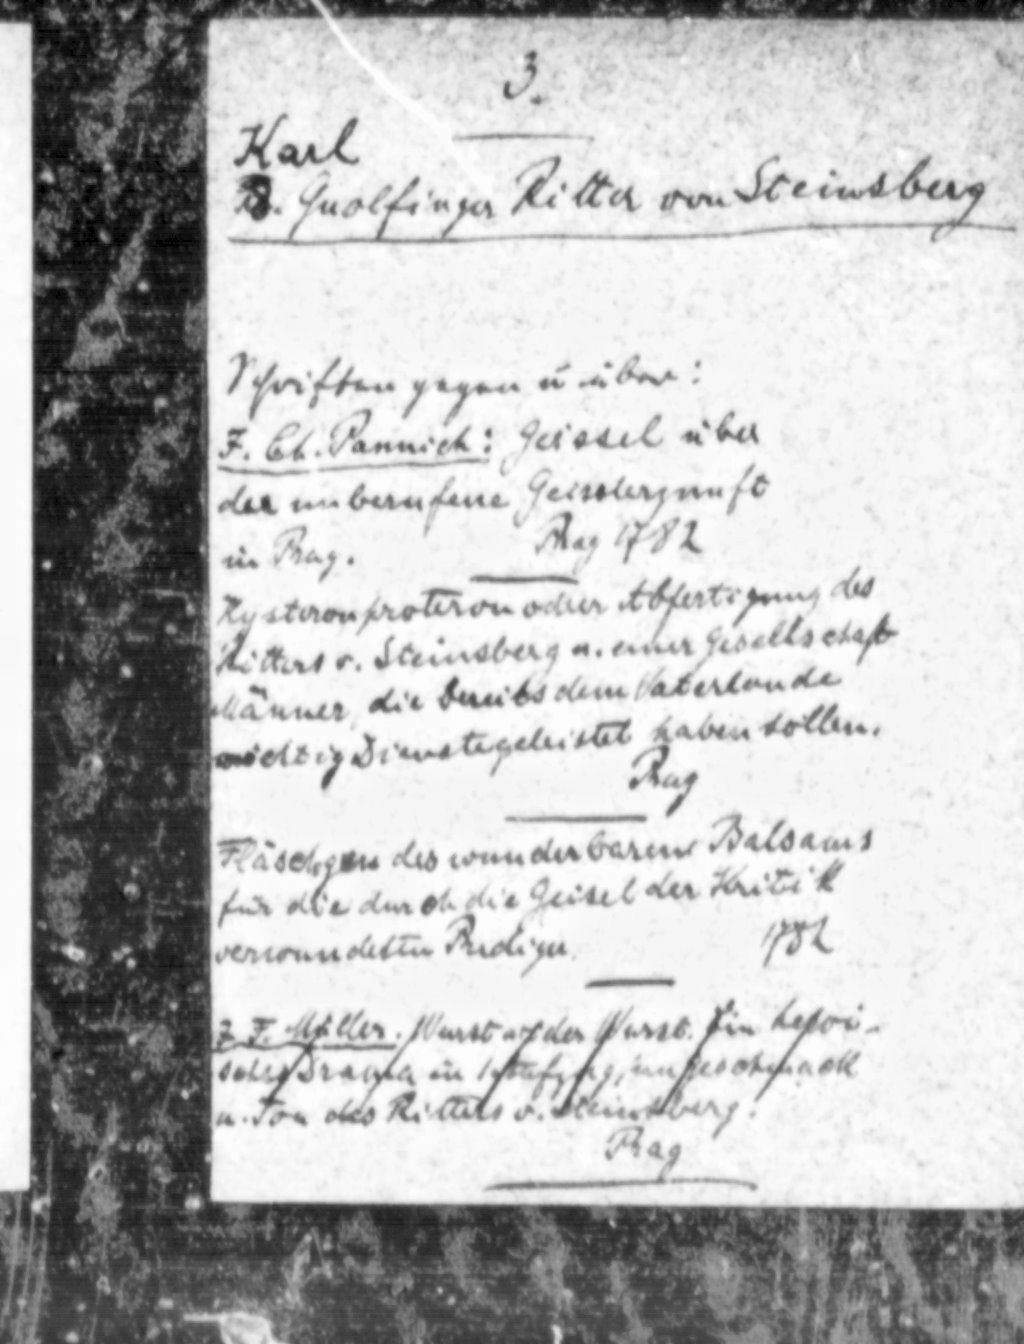 3.
Karl
R. Guolfinger Ritter von Steinsberg
Schriften gegen u über:
F. Ch. Pannich: Geissel über
der unberufene Geisslerzunft
in Prag. Prag 1782
Hysteronproteron oder Abfertigung des
Ritters v. Steinsberg u. einer Gesellschaft
Männer, die bereits dem Vaterlande
wichtig Dienste geleistet haben sollen.
Prag
Fläschgen des wunderbaren Balsams
für die durch die Geisel der Kritik
verwundeten Prediger. 1782
F. Müller. Wurst auf der Wurst. Ein heroi-
sches Drama in 1 Aufzug, im Geschmack
u. Ton des Ritters v. Steinsberg.
Prag